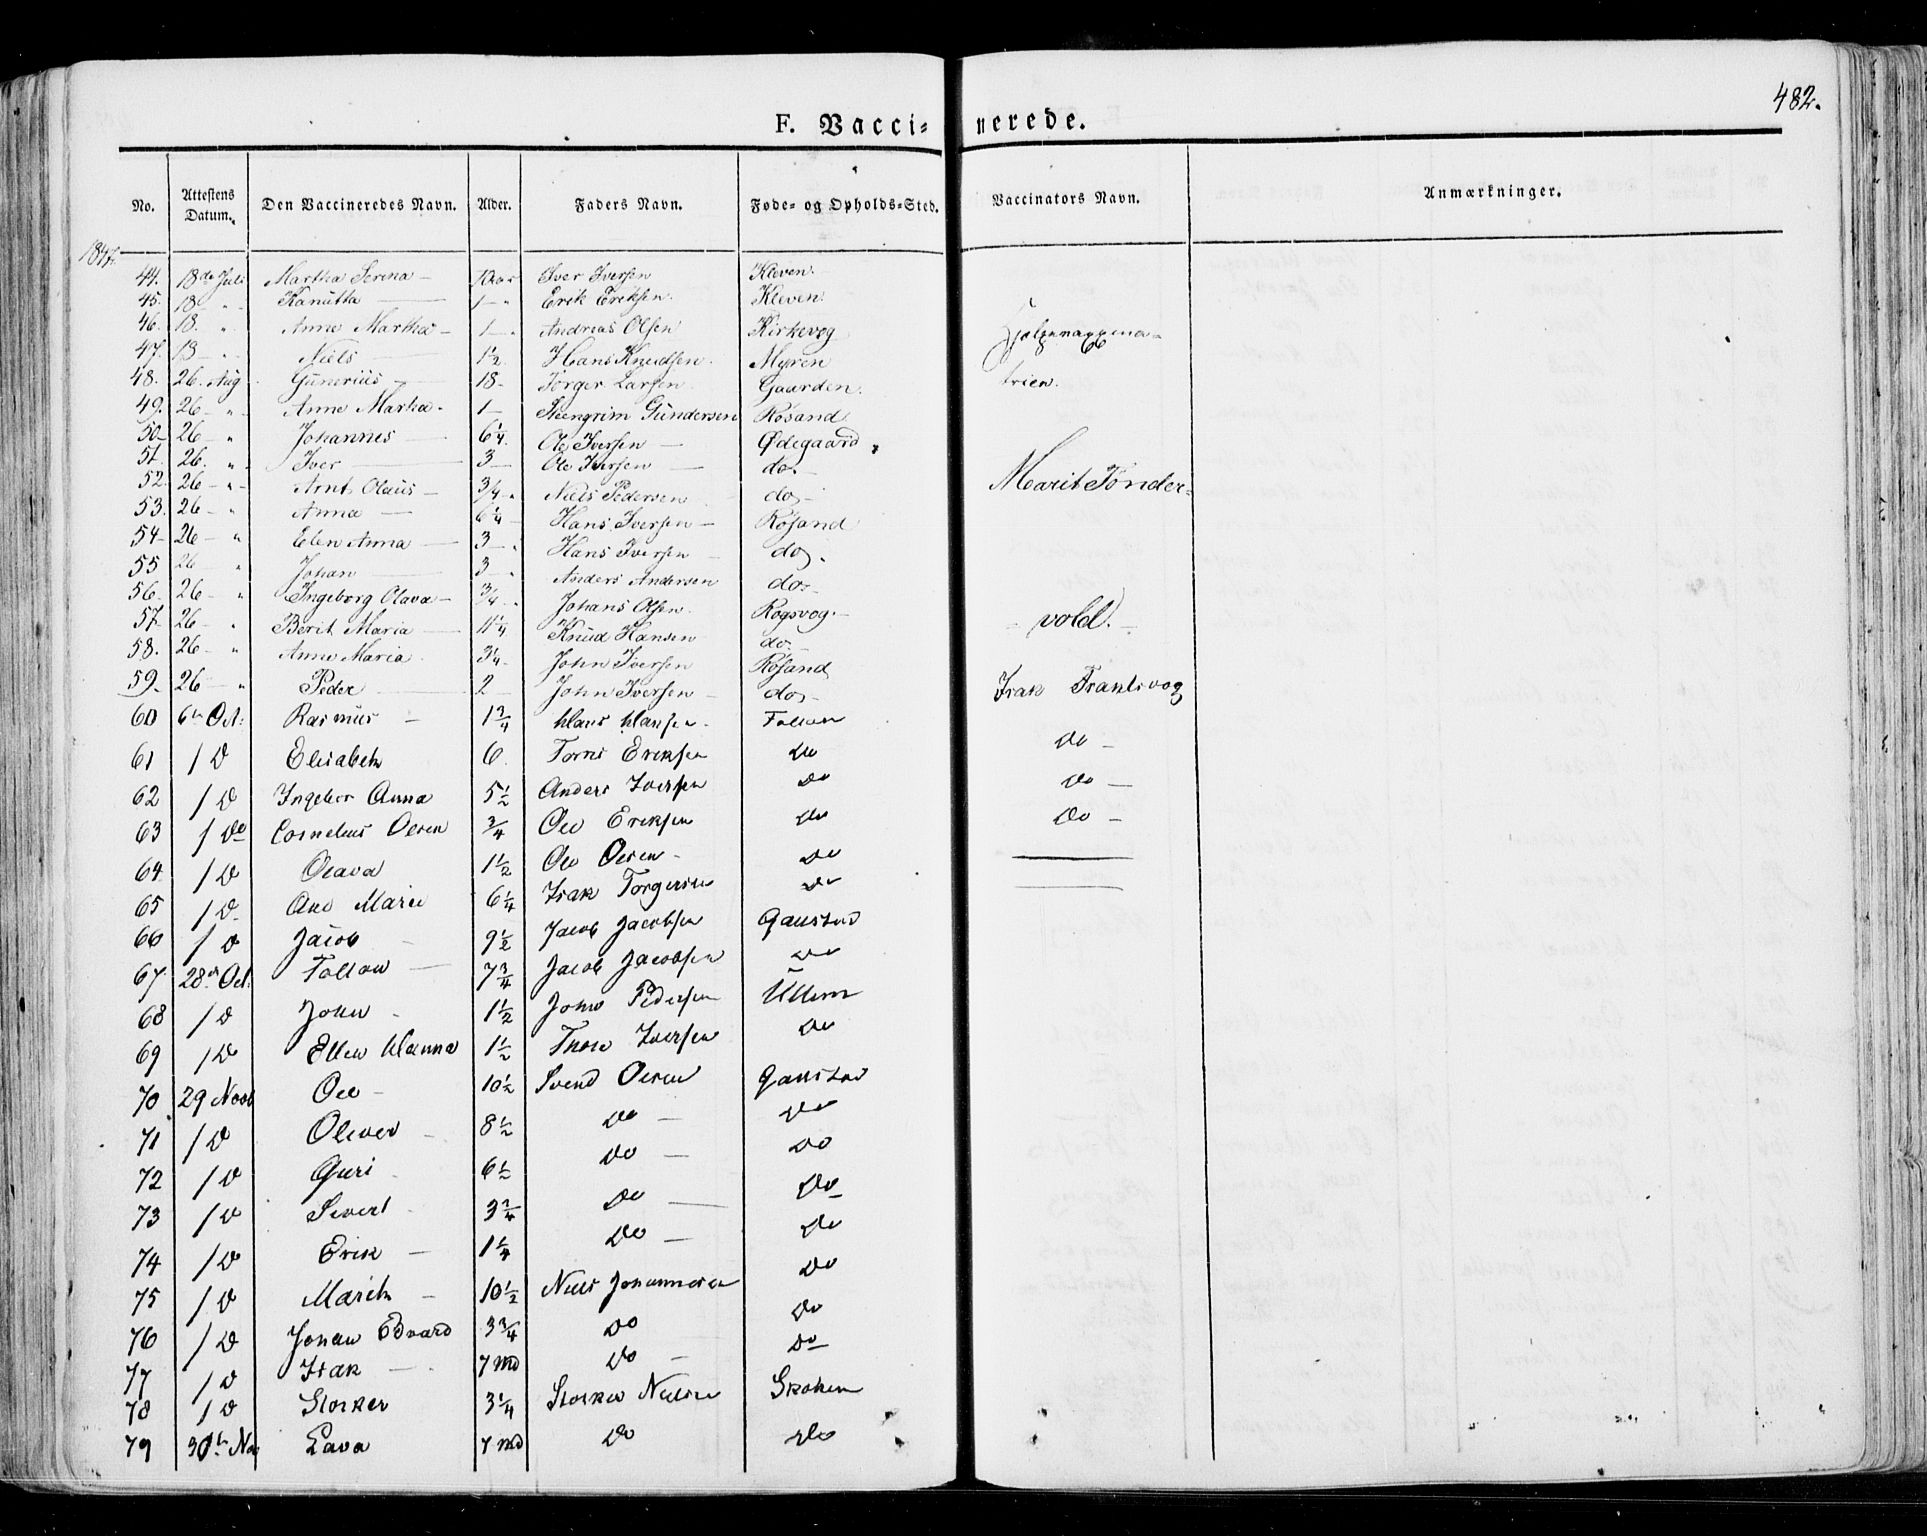 482.
F. Vacci- nerede.
No. Attestens Datum. Den Vaccineredes Navn. Alder. Faders Navn. Føde- og Opholds-Sted. Vaccinators Navn. Anmærkninger.
44. 18de Juli Martha Serina — Iver Iversen Kleven.
45. 18 " Kanutta — 1 — " Erik Eriksen. Kleven.
46. 18. " Anne Martha — 1 — " Andreas Olsen Kirkevog
47. 18 — " Niels — 1 1/2 Hans Knudsen. Myren
48. 26. Aug Gunerius — 18 — Torger Larsen. Gaarden. trien.
49. 26 — " Anne Martha. 1 — Steengrim Gundersen Rosand
50 — 26 — " Johannes — 6 1/4 Ole Iversen — Ødegaard
51. 26. " Iver — 3 — Ole Iversen — do. —
52. 26 — " Arnt Olaus — 3/4 — " Niels Pedersen do — Marit Tønder-
53. 26 — " Anna — 6 1/4 — Hans Iversen — Røsand
54 — 26 — " Elen Anna — 3 — " Hans Iversen — do.
55 26 — " Johan — 3 — " Anders Andersen do —
56. 26 — " Ingeborg Olava — 3/4 — " Johans Olsen. Rogsvog. —
57. 26 — " Berit Maria — 11 1/4 Knud Hansen do — vold. —
58. 26 — " Anne Maria. 3 1/4 — John Iversen Røsand
59. 26 — " Peder — 2 — John Iversen — do — Isak Frantsvog
60 6te Oct: Rasmus — 1 3/4 Hans Hansen. Follan
61 / D Elisabeth 6. Torris Eriksen Do Do —
62 / D Ingebor Anna 5 1/2 Anders Iversen Do Do —
63 / Do Cornelius Olsen 3/4 Ole Eriksen Do Do —
64 / D Olava 1 1/2 Ole Olsen — Do
65 / D Ane Marie 6 1/4 Isak Torgersen Do
66 / D Jacob — 9 1/2 Jacob Jacobsen Gaustad
67 28de Oct: — 7 3/4 Jacob Jacobsen Do
68 / D John — 1 1/2 John Pedersen Ullem
69 / D Ellen Hanna 1 1/2 Thore Iversen Do
70 29 Novb Ole — 10 1/2 Svend Olsen Gaustad
71 / D Oliver — 8 1/2 Do — Do
72 / D Guri — 6 1/2 Do — Do
73 / D Sivert 3 3/4 Do — Do
74 / D Erik — 1 1/4 Do — Do
75 / D Marith — 10 1/2 Niels Johannesen Do
76 / D Johan Edvard 3 3/4 Do Do
77 / D Isak — 7 Md Do — Do
78 / D Storker 3 1/4 Storker Nielsen Skoken
79 30te Nov Lava 7 Md Do Do